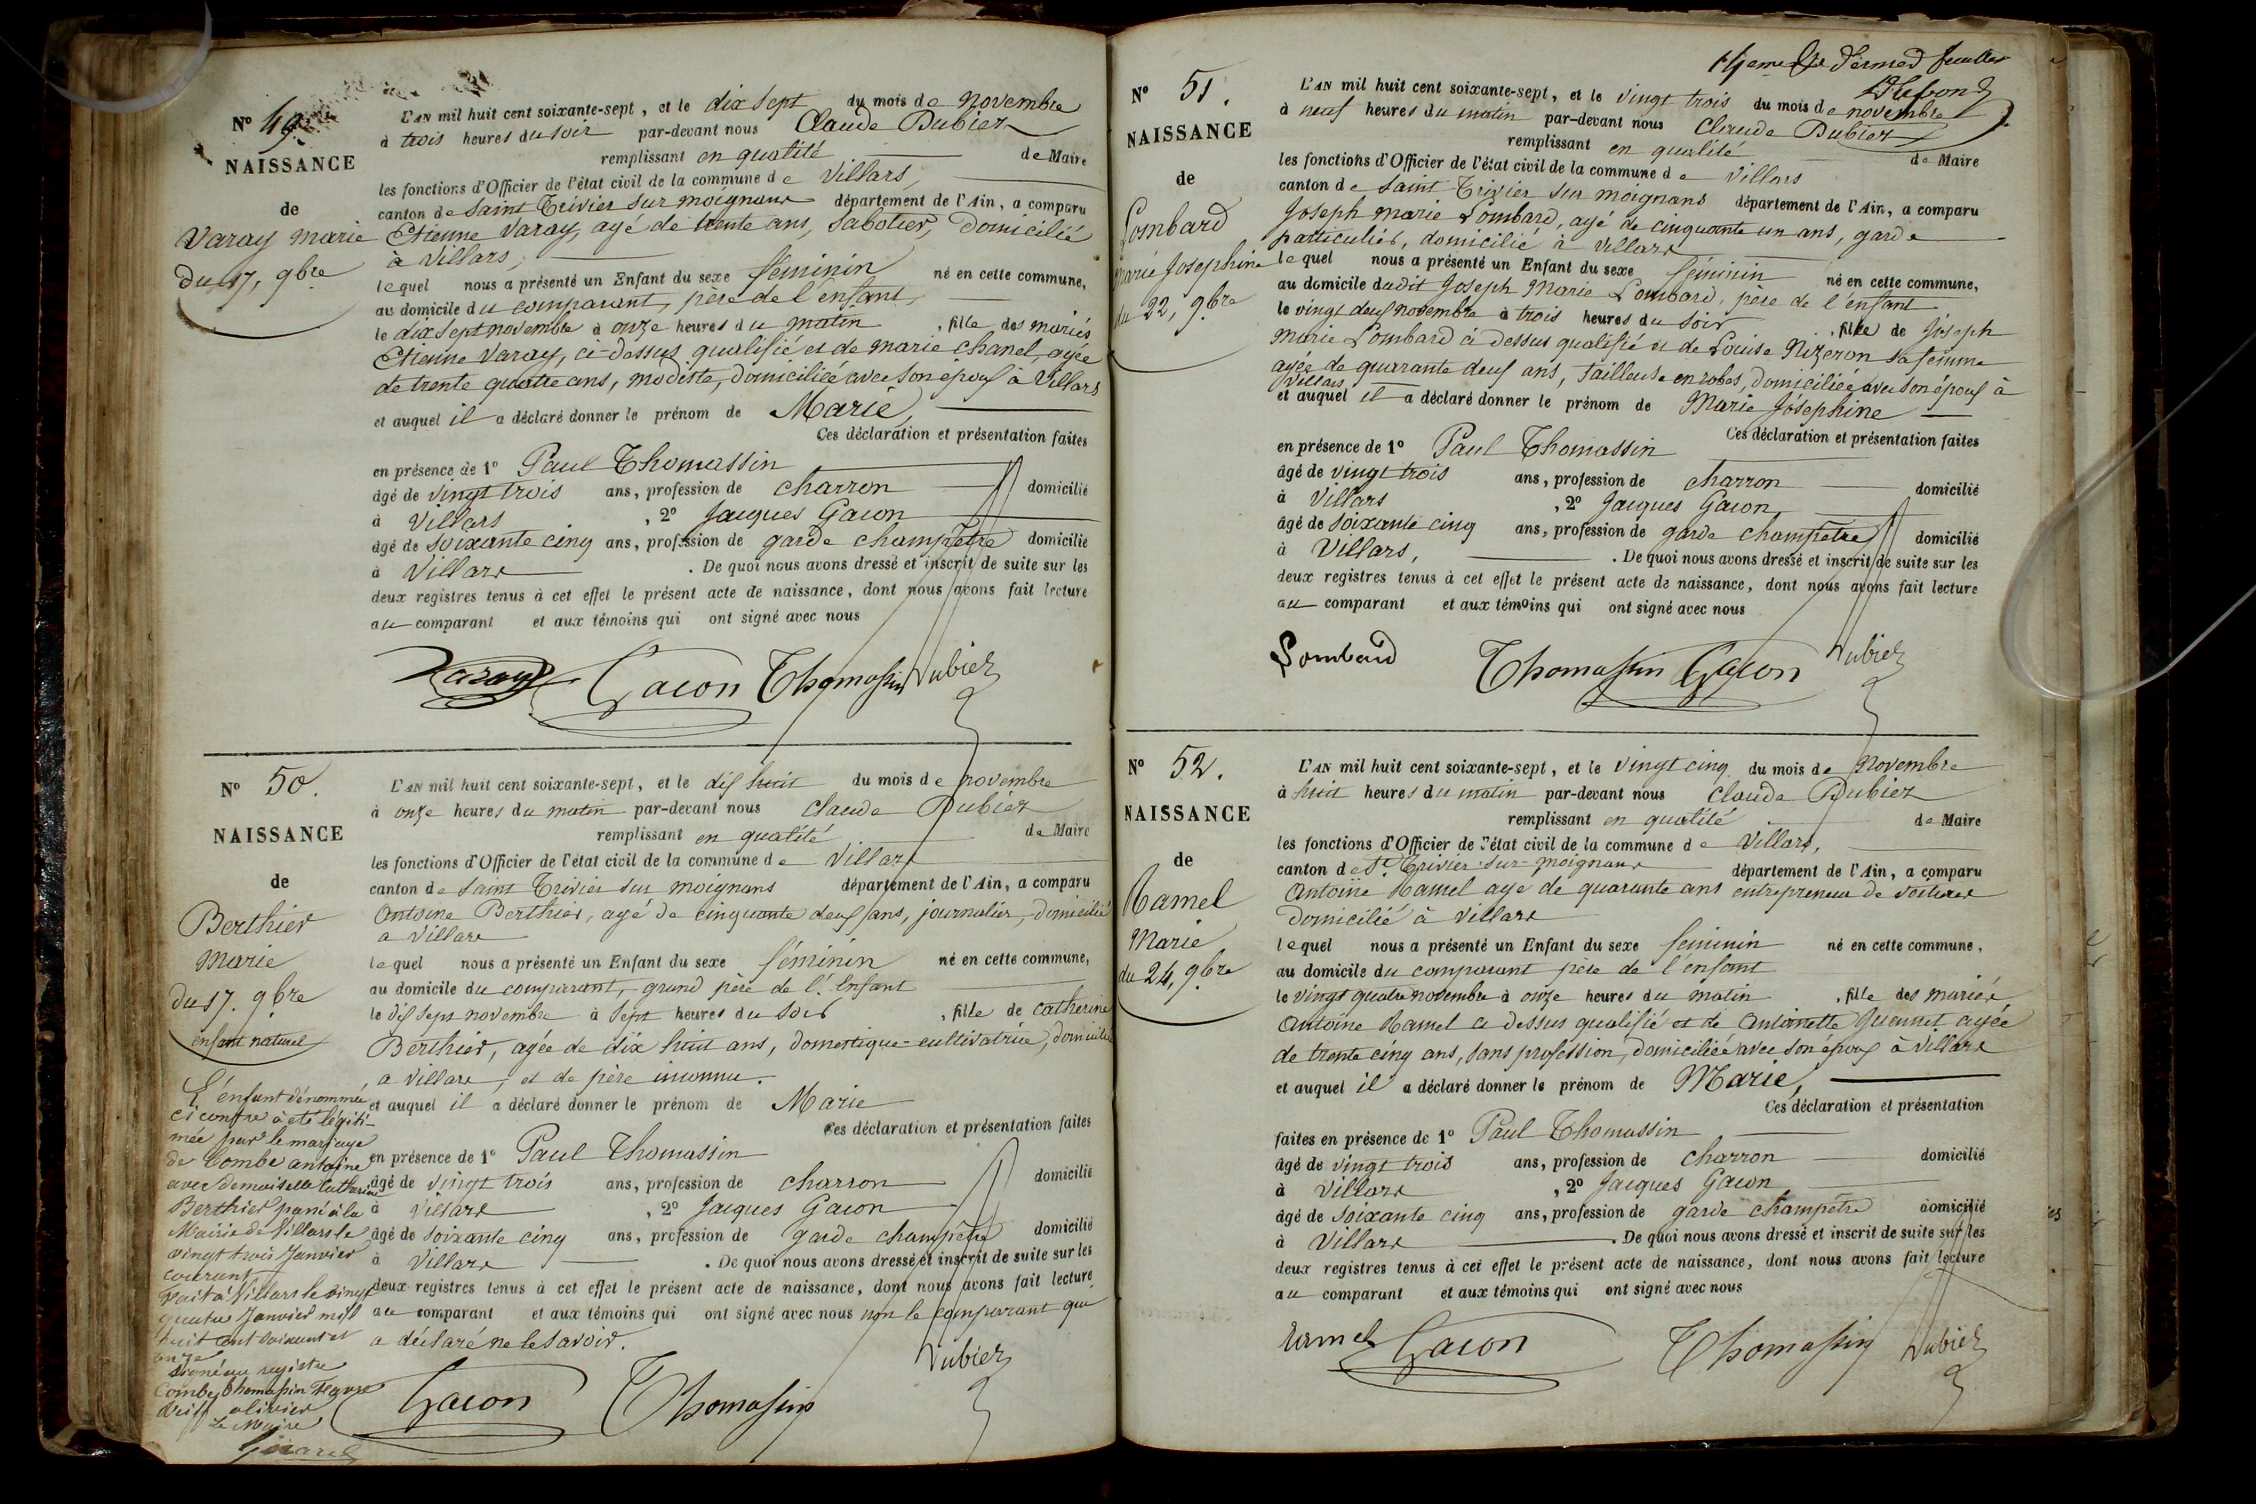 N° 49.
NAISSANCE
de
Varay marie
du 17, 9bre
L'AN mil huit cent soixante-sept, et le dix sept du mois de novembre
à trois heures du soir par-devant nous Claude Dubiez
remplissant en qualité de Maire
les fonctions d'Officier de l'état civil de la commune de Villars,
canton de Saint Trivier sur moignans département de l'Ain, a comparu
Etienne Varay, agé de trente ans, Sabotier, Domicilié
à Villars,
lequel nous a présenté un Enfant du sexe féminin né en cette commune,
au domicile du comparant, père de l'enfant,
le dix sept novembre à onze heures du matin, fille des mariés
Etienne Varay, ci-dessus qualifié et de marie Chanel, agée
de trente quatre ans, modiste, domiciliée avec son epoux à Villars
et auquel il a déclaré donner le prénom de Marie,
Ces déclaration et présentation faites
en présence de 1° Paul Thomassin
âgé de vingt trois ans, profession de charron domicilié
à Villars, 2° Jacques Gacon
âgé de soixante cinq ans, profession de garde champêtre domicilié
à Villars. De quoi nous avons dressé et inscrit de suite sur les
deux registres tenus à cet effet le présent acte de naissance, dont nous avons fait lecture
au comparant et aux témoins qui ont signé avec nous
Varay Gacon Thomassin Dubiez
N° 50.
NAISSANCE
de
Berthier
Marie
du 17. 9bre
enfant naturel
L'enfant dénommé
ci contre à été légiti-
mée par le mariage
de Combe antoine
avec demoiselle Catherine
Berthier passé à la
Mairie de Villars le
vingt trois Janvier
courant
Fait à Villars le vingt
quatre Janvier mil
huit cent soixante et
onze
Signé au registre
Combe, Thomassin
olivier
Le Maire
L'AN mil huit cent soixante-sept, et le dix huit du mois de novembre
à onze heures du matin par-devant nous Claude Dubiez
remplissant en qualité de Maire
les fonctions d'Officier de l'état civil de la commune de Villars
canton de Saint Trivier sur moignans département de l'Ain, a comparu
Antoine Berthier, agé de cinquante deux ans, journalier, domicilié
a Villars
lequel nous a présenté un Enfant du sexe féminin né en cette commune,
au domicile du comparant, grand père de l'Enfant
le dix sept novembre à sept heures du soir, fille de Catherine
Berthier, agée de dix huit ans, domestique-cultivatrice, domiciliée
a Villars, et de père inconnu.
et auquel il a déclaré donner le prénom de Marie
Ces déclaration et présentation faites
en présence de 1° Paul Thomassin
âgé de vingt trois ans, profession de charron domicilié
à Villars, 2° Jacques Gacon
âgé de soixante cinq ans, profession de garde champêtre domicilié
à Villars. De quoi nous avons dressé et inscrit de suite sur les
deux registres tenus à cet effet le présent acte de naissance, dont nous avons fait lecture
au comparant et aux témoins qui ont signé avec nous non le comparant qui
a déclaré ne le savoir.
Gacon Thomassin Dubiez
N° 51.
NAISSANCE
de
Lombard
Marie Josephine
du 22, 9bre
L'AN mil huit cent soixante-sept, et le vingt trois du mois de novembre
à neuf heures du matin par-devant nous Claude Dubiez
remplissant en qualité de Maire
les fonctions d'Officier de l'état civil de la commune de Villars
canton de Saint Trivier sur moignans département de l'Ain, a comparu
Joseph marie Lombard, agé de cinquante un ans, garde
particulier, domicilié à Villars
lequel nous a présenté un Enfant du sexe féminin né en cette commune,
au domicile dudit Joseph Marie Lombard, père de l'enfant
le vingt deux novembre à trois heures du soir, fille de Joseph
Marie Lombard ci dessus qualifié et de Louise Nizeron sa femme
agée de quarante deux ans, tailleuse en robes, domiciliée avec son époux à
Villars
et auquel il a déclaré donner le prénom de Marie Joséphine
Ces déclaration et présentation faites
en présence de 1° Paul Thomassin
âgé de vingt trois ans, profession de charron
à Villars, 2° Jacques Gacon domicilié
âgé de soixante cinq ans, profession de garde champêtre domicilié
à Villars,. De quoi nous avons dressé et inscrit de suite sur les
deux registres tenus à cet effet le présent acte de naissance, dont nous avons fait lecture
au comparant et aux témoins qui ont signé avec nous
Lombard Thomassin Gacon Dubiez
N° 52.
NAISSANCE
de
Ramel
Marie
du 24, 9bre
L'AN mil huit cent soixante-sept, et le vingt cinq du mois de Novembre
à huit heures du matin par-devant nous Claude Dubiez
remplissant en qualité de Maire
les fonctions d'Officier de l'état civil de la commune de Villars,
canton de St. Trivier-sur-moignans département de l'Ain, a comparu
Antoine Ramel agé de quarante ans entrepreneur de voitures
Domicilié à Villars
lequel nous a présenté un Enfant du sexe féminin né en cette commune,
au domicile du comparant père de l'enfant
le vingt quatre novembre à onze heures du matin, fille des mariés
Antoine Ramel ci dessus qualifié et de Antoinette agée
de trente cinq ans, sans profession, domiciliée avec son époux à Villars
et auquel il a déclaré donner le prénom de Marie,
Ces déclaration et présentation
faites en présence de 1° Paul Thomassin
âgé de vingt trois ans, profession de charron domicilié
à Villars, 2° Jacques Gacon
âgé de soixante cinq ans, profession de garde champêtre domicilié
à Villars. De quoi nous avons dressé et inscrit de suite sur les
deux registres tenus à cet effet le présent acte de naissance, dont nous avons fait lecture
au comparant et aux témoins qui ont signé avec nous
Ramel Gacon Thomassin Dubiez